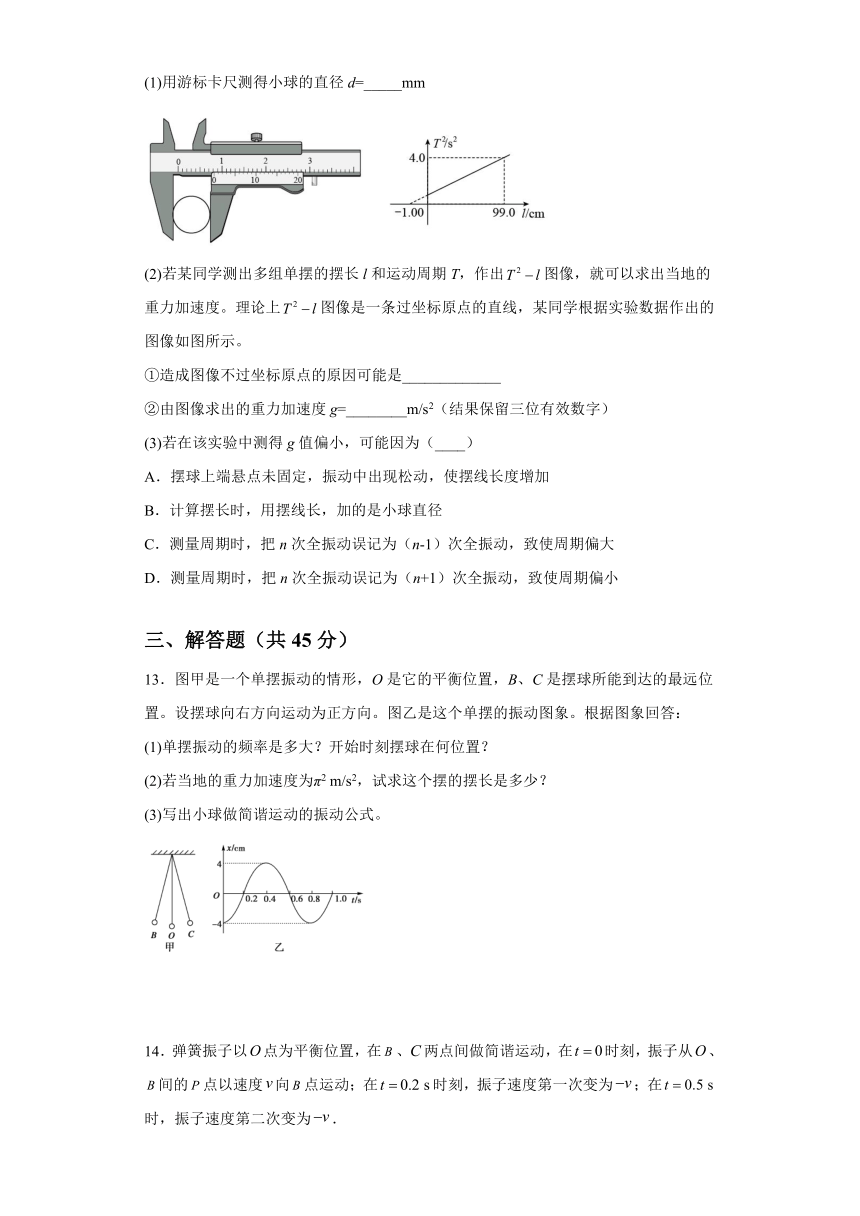 (1)用游标卡尺测得小球的直径 d=_____mm
0 1 2 3
0 10 20
T²/s²
4.0
−1.00 99.0 l/cm
(2)若某同学测出多组单摆的摆长 l 和运动周期 T，作出 T² − l 图像，就可以求出当地的
重力加速度。理论上 T² − l 图像是一条过坐标原点的直线，某同学根据实验数据作出的
图像如图所示。
①造成图像不过坐标原点的原因可能是_____________
②由图像求出的重力加速度 g=________m/s²（结果保留三位有效数字）
(3)若在该实验中测得 g 值偏小，可能因为（____）
A．摆球上端悬点未固定，振动中出现松动，使摆线长度增加
B．计算摆长时，用摆线长，加的是小球直径
C．测量周期时，把 n 次全振动误记为（n-1）次全振动，致使周期偏大
D．测量周期时，把 n 次全振动误记为（n+1）次全振动，致使周期偏小
三、解答题（共 45 分）
13．图甲是一个单摆振动的情形，O 是它的平衡位置，B、C 是摆球所能到达的最远位
置。设摆球向右方向运动为正方向。图乙是这个单摆的振动图象。根据图象回答：
(1)单摆振动的频率是多大？开始时刻摆球在何位置？
(2)若当地的重力加速度为π² m/s²，试求这个摆的摆长是多少？
(3)写出小球做简谐运动的振动公式。
x/cm
4
O 0.2 0.4 0.6 0.8 1.0 t/s
−4
B O C
甲 乙
14．弹簧振子以 O 点为平衡位置，在 B 、C 两点间做简谐运动，在 t = 0 时刻，振子从 O 、
B 间的 P 点以速度 v 向 B 点运动；在 t = 0.2 s 时刻，振子速度第一次变为 −v；在 t = 0.5 s
时，振子速度第二次变为 −v．